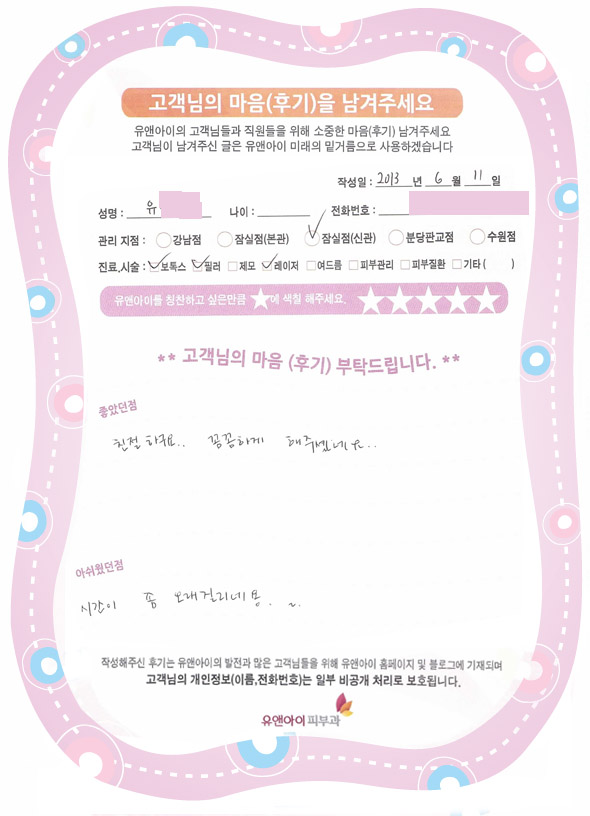 고객님의 마음(후기)을 남겨주세요
유앤아이의 고객님들과 직원들을 위해 소중한 마음(후기) 남겨주세요
고객님이 남겨주신 글은 유앤아이 미래의 밑거름으로 사용하겠습니다
작성일 : 2013 년 6 월 11 일
성명 : 유 나이 : 전화번호 :
관리 지점 : 강남점 잠실점(본관) 잠실점(신관) 분당판교점 수원점
진료,시술 : 보톡스 필러 제모 레이저 여드름 피부관리 피부질환 기타 ( )
유앤아이를 칭찬하고 싶은만큼 ★에 색칠 해주세요. ★★★★★
** 고객님의 마음 (후기) 부탁드립니다. **
좋았던점
친절하구요.. 꼼꼼하게 해주셨네요..
아쉬웠던점
시간이 좀 오래걸리네용.
작성해주신 후기는 유앤아이의 발전과 많은 고객님들을 위해 유앤아이 홈페이지 및 블로그에 기재되며
고객님의 개인정보(이름,전화번호)는 일부 비공개 처리로 보호됩니다.
유앤아이 피부과